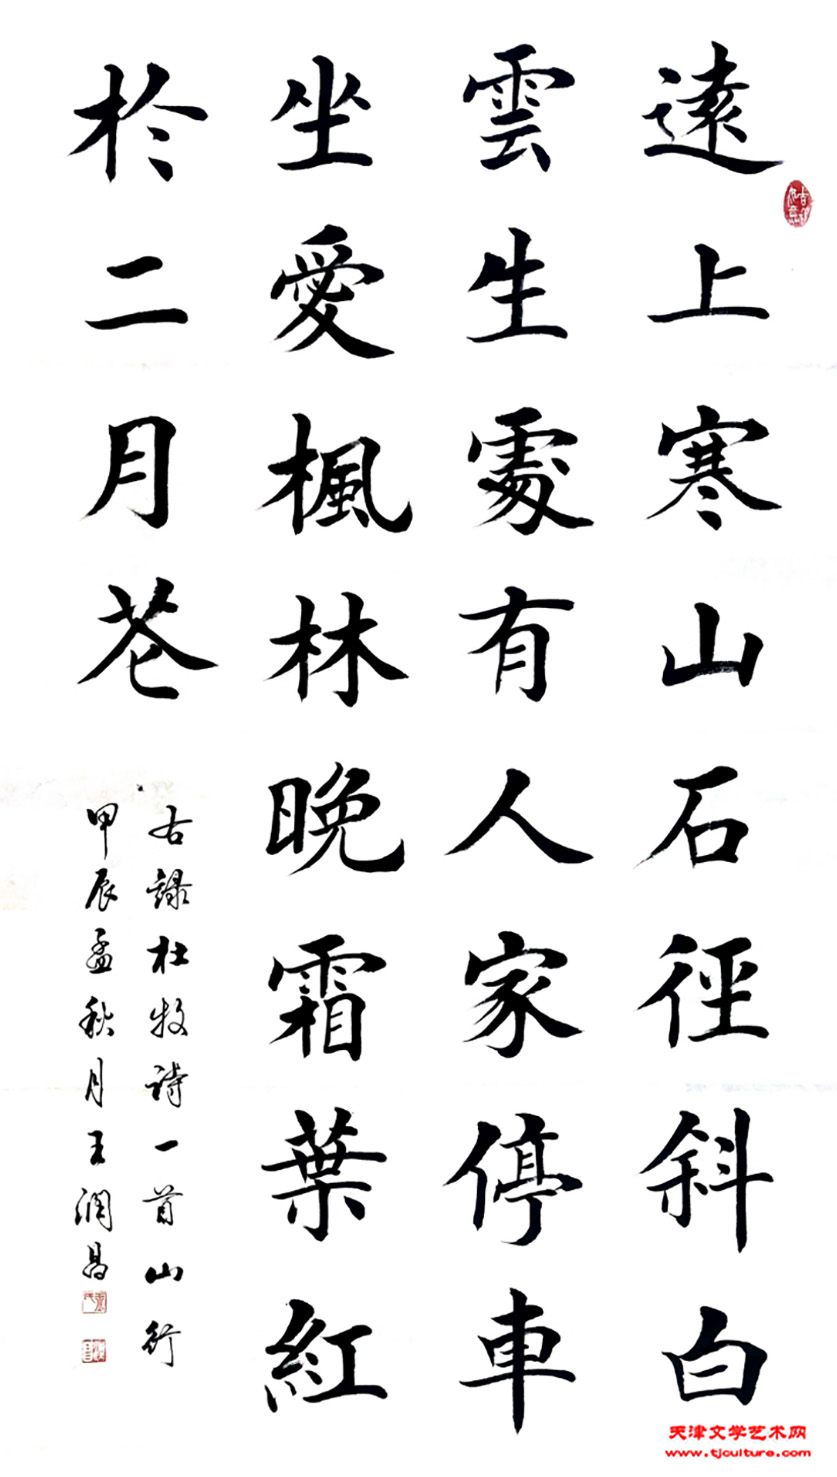 遠上寒山石徑斜白
雲生處有人家停車
坐愛楓林晚霜葉紅
於二月花
右録杜牧詩一首山行
甲辰孟秋月王潤昌
天津文学艺术网
www.tjculture.com